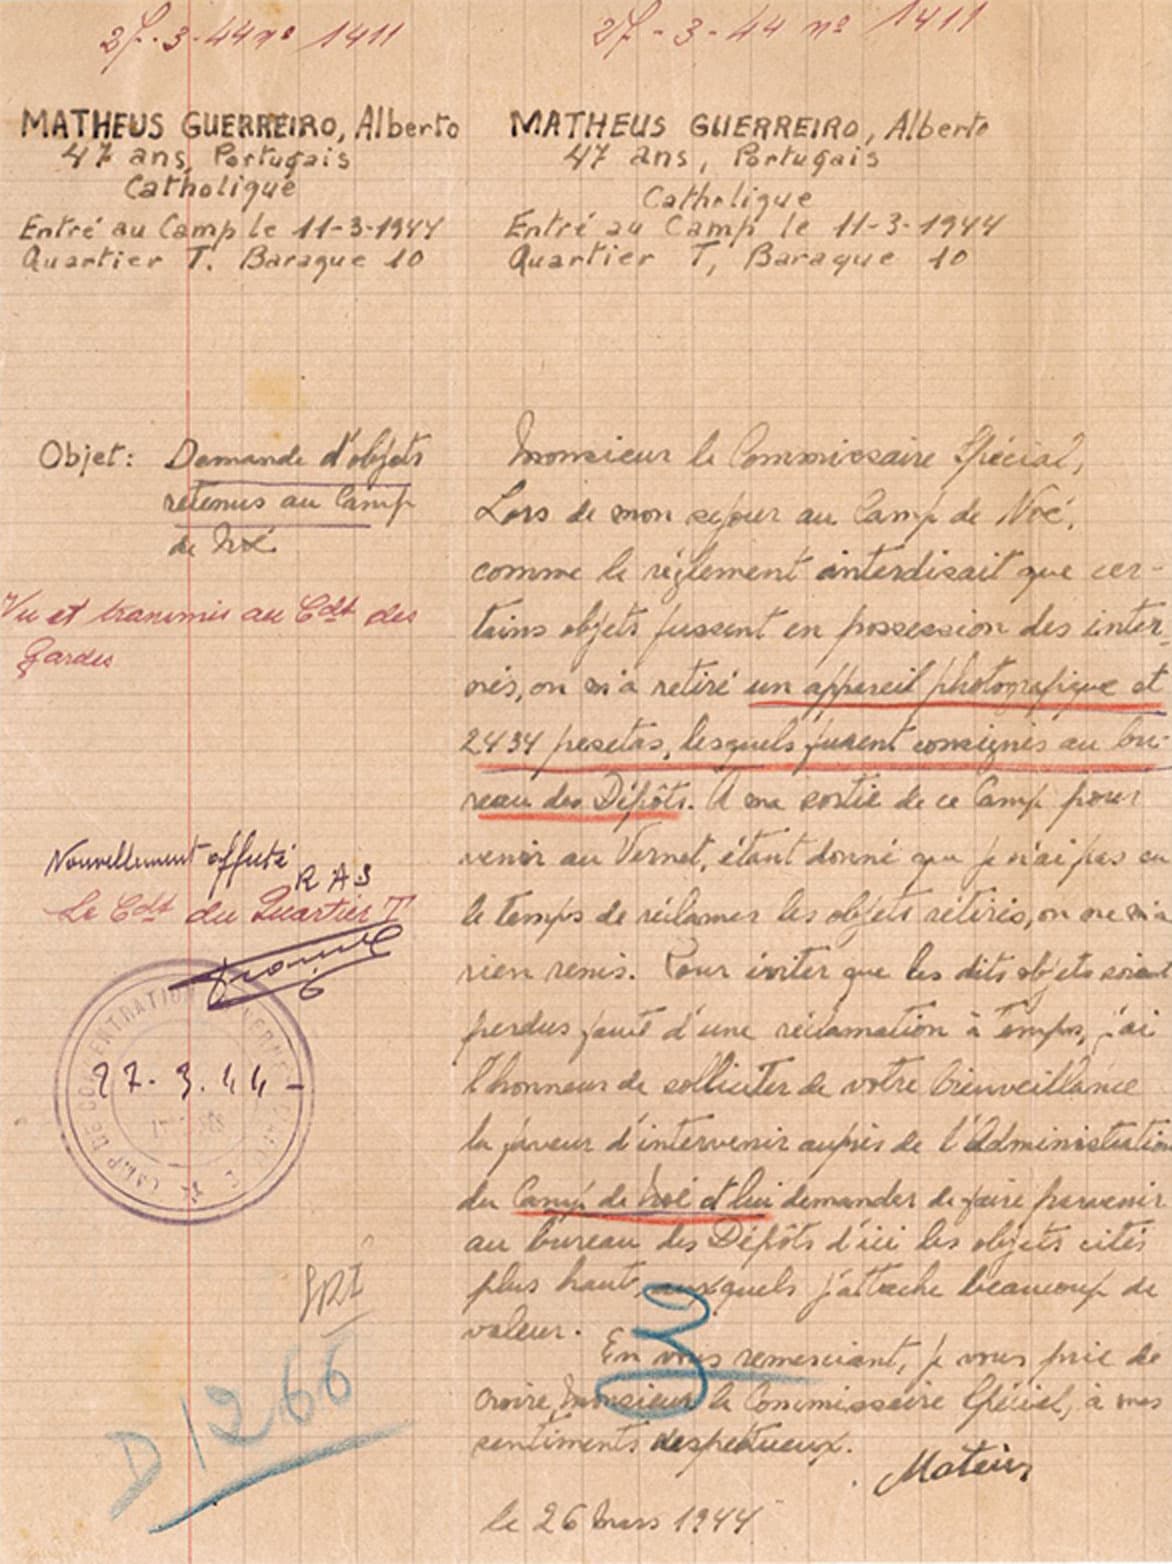 27-3-44 nº 1411
27-3-44 nº 1411
MATHEUS GUERREIRO, Alberto
47 ans, Portugais
Catholique
Entré au Camp le 11-3-1944
Quartier T. Baraque 10
MATHEUS GUERREIRO, Alberto
47 ans, Portugais
Catholique
Entré au Camp le 11-3-1944
Quartier T, Baraque 10
Objet: Demande d'objets
retenus au Camp
de Noé
Vu et transmis au Cdt des
Gardes
Nouvellement affecté
R A S
Le Cdt du Quartier T
CAMP DE CONCENTRATION VERNET
27.3.44-
D1266
Monsieur le Commissaire Spécial,
Lors de mon sejour au Camp de Noé,
comme le réglement interdisait que cer-
tains objets fussent en possession des inter-
nés, on m'a retiré un appareil photografique et
2434 pesetas, lesquels furent consignés au bu-
reau des Dépôts. A ma sortie de ce Camp pour
venir au Vernet, étant donné que je n'ai pas eu
le temps de réclamer les objets rétirés, on ne m'a
rien remis. Pour éviter que les dits objets soient
perdus faute d'une réclamation à temps, j'ai
l'honneur de solliciter de votre bienveillance
la faveur d'intervenir auprès de l'Administration
du Camp de Noé et lui demander de faire parvenir
au bureau des Dépôts d'ici les objets cités
plus haut, auxquels j'attache beaucoup de
valeur.
3
En vous remerciant, je vous prie de
croire, Monsieur le Commissaire Spécial, à mes
sentiments respectueux.
Mateus
le 26 Mars 1944